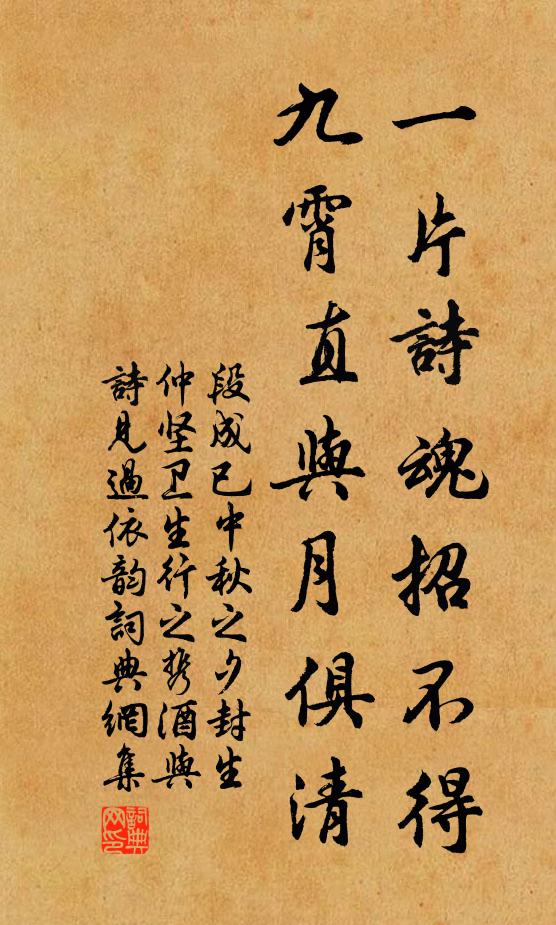 一片詩魂招不得
九霄直與月俱清
段成已中秋之夕封生
仲坚卫生行之携酒與
詩見過依韵詞典網集
詞典
网印